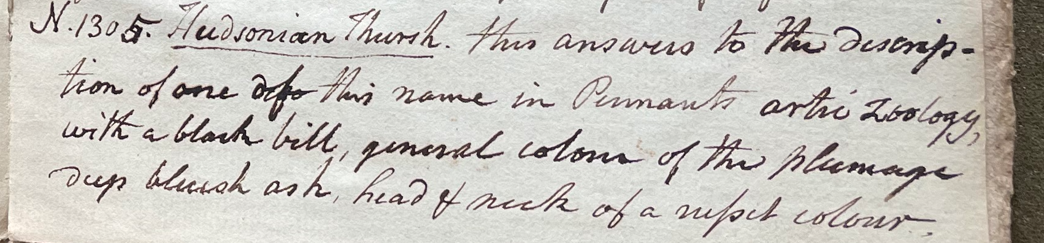 N. 1305. Hudsonian Thursh. this answers to the descrip-
tion of one of this name in Pennants artic Zoology,
with a black bill, general colour of the plumage
deep bluish ash, head & neck of a russet colour.